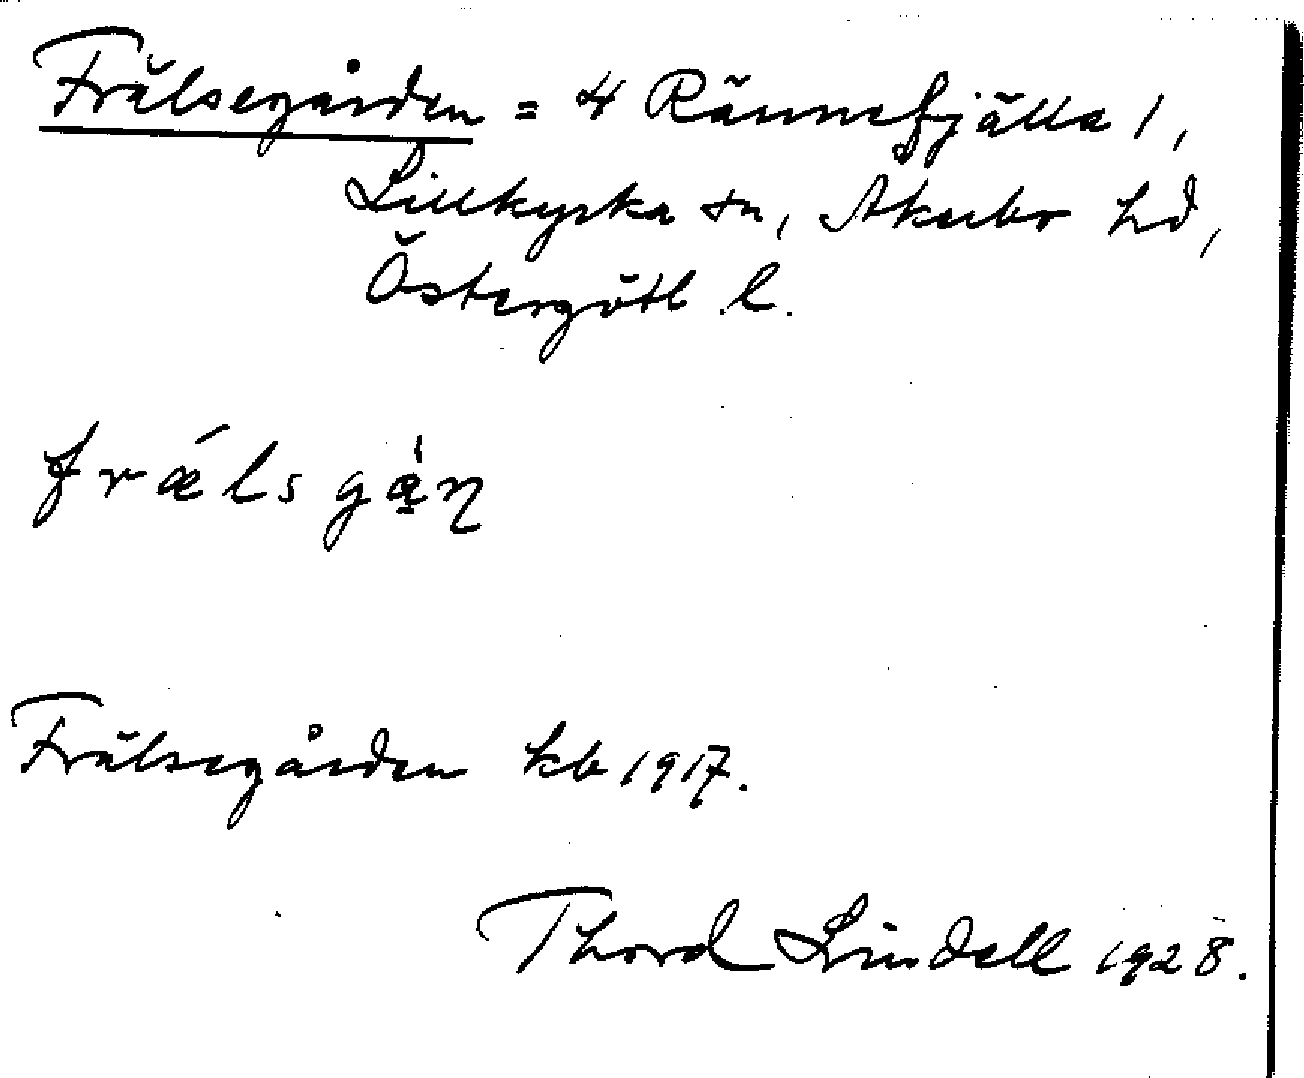 Frälsegården = 4 Rännefjälla 1,
Lillkyrka sn, Åkerbo hd,
Östergötl l.
frǽlsgá̱ɳ
Frälsegården kb 1917.
Thord Lindell 1928.